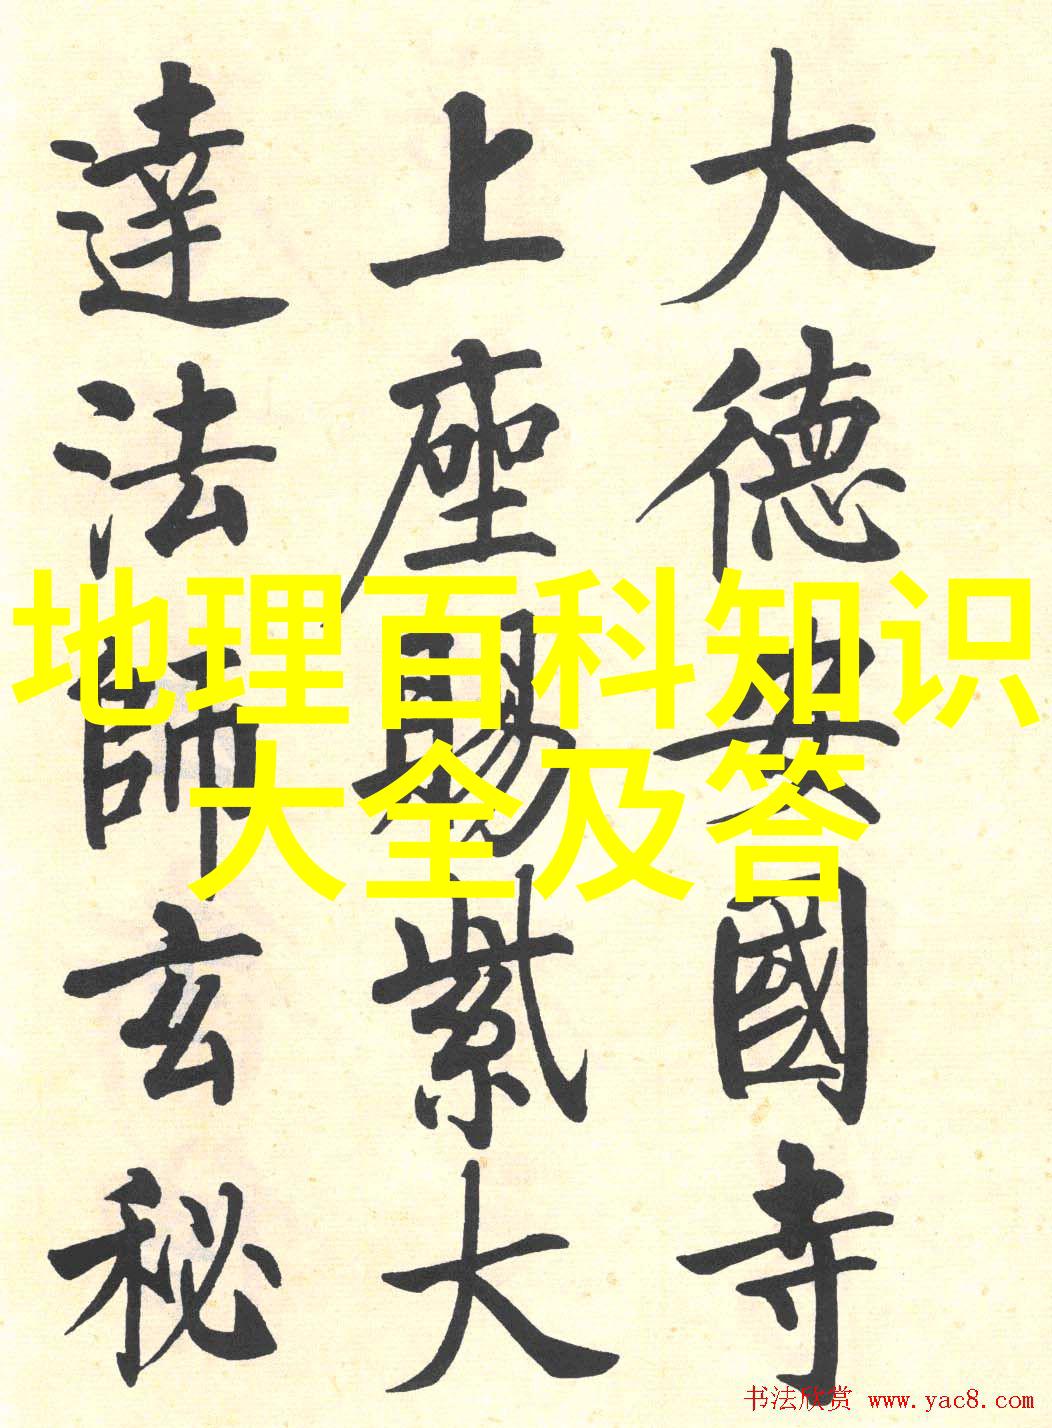 大德安國寺
上座賜紫大
達法師玄秘
地理百科知识
大全及答
书法欣赏 www.yac8.com